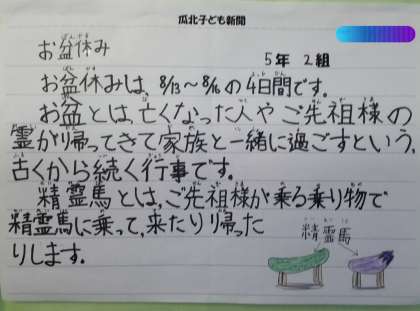 瓜北子ども新聞
お盆休み
5年 2組
お盆休みは、8/13～8/16の4日間です。
お盆とは、亡くなった人やご先祖様の
霊が帰ってきて家族と一緒に過ごすという、
古くから続く行事です。
精霊馬とは、ご先祖様が乗る乗り物で
精霊馬に乗って、来たり帰った
りします。
精霊馬